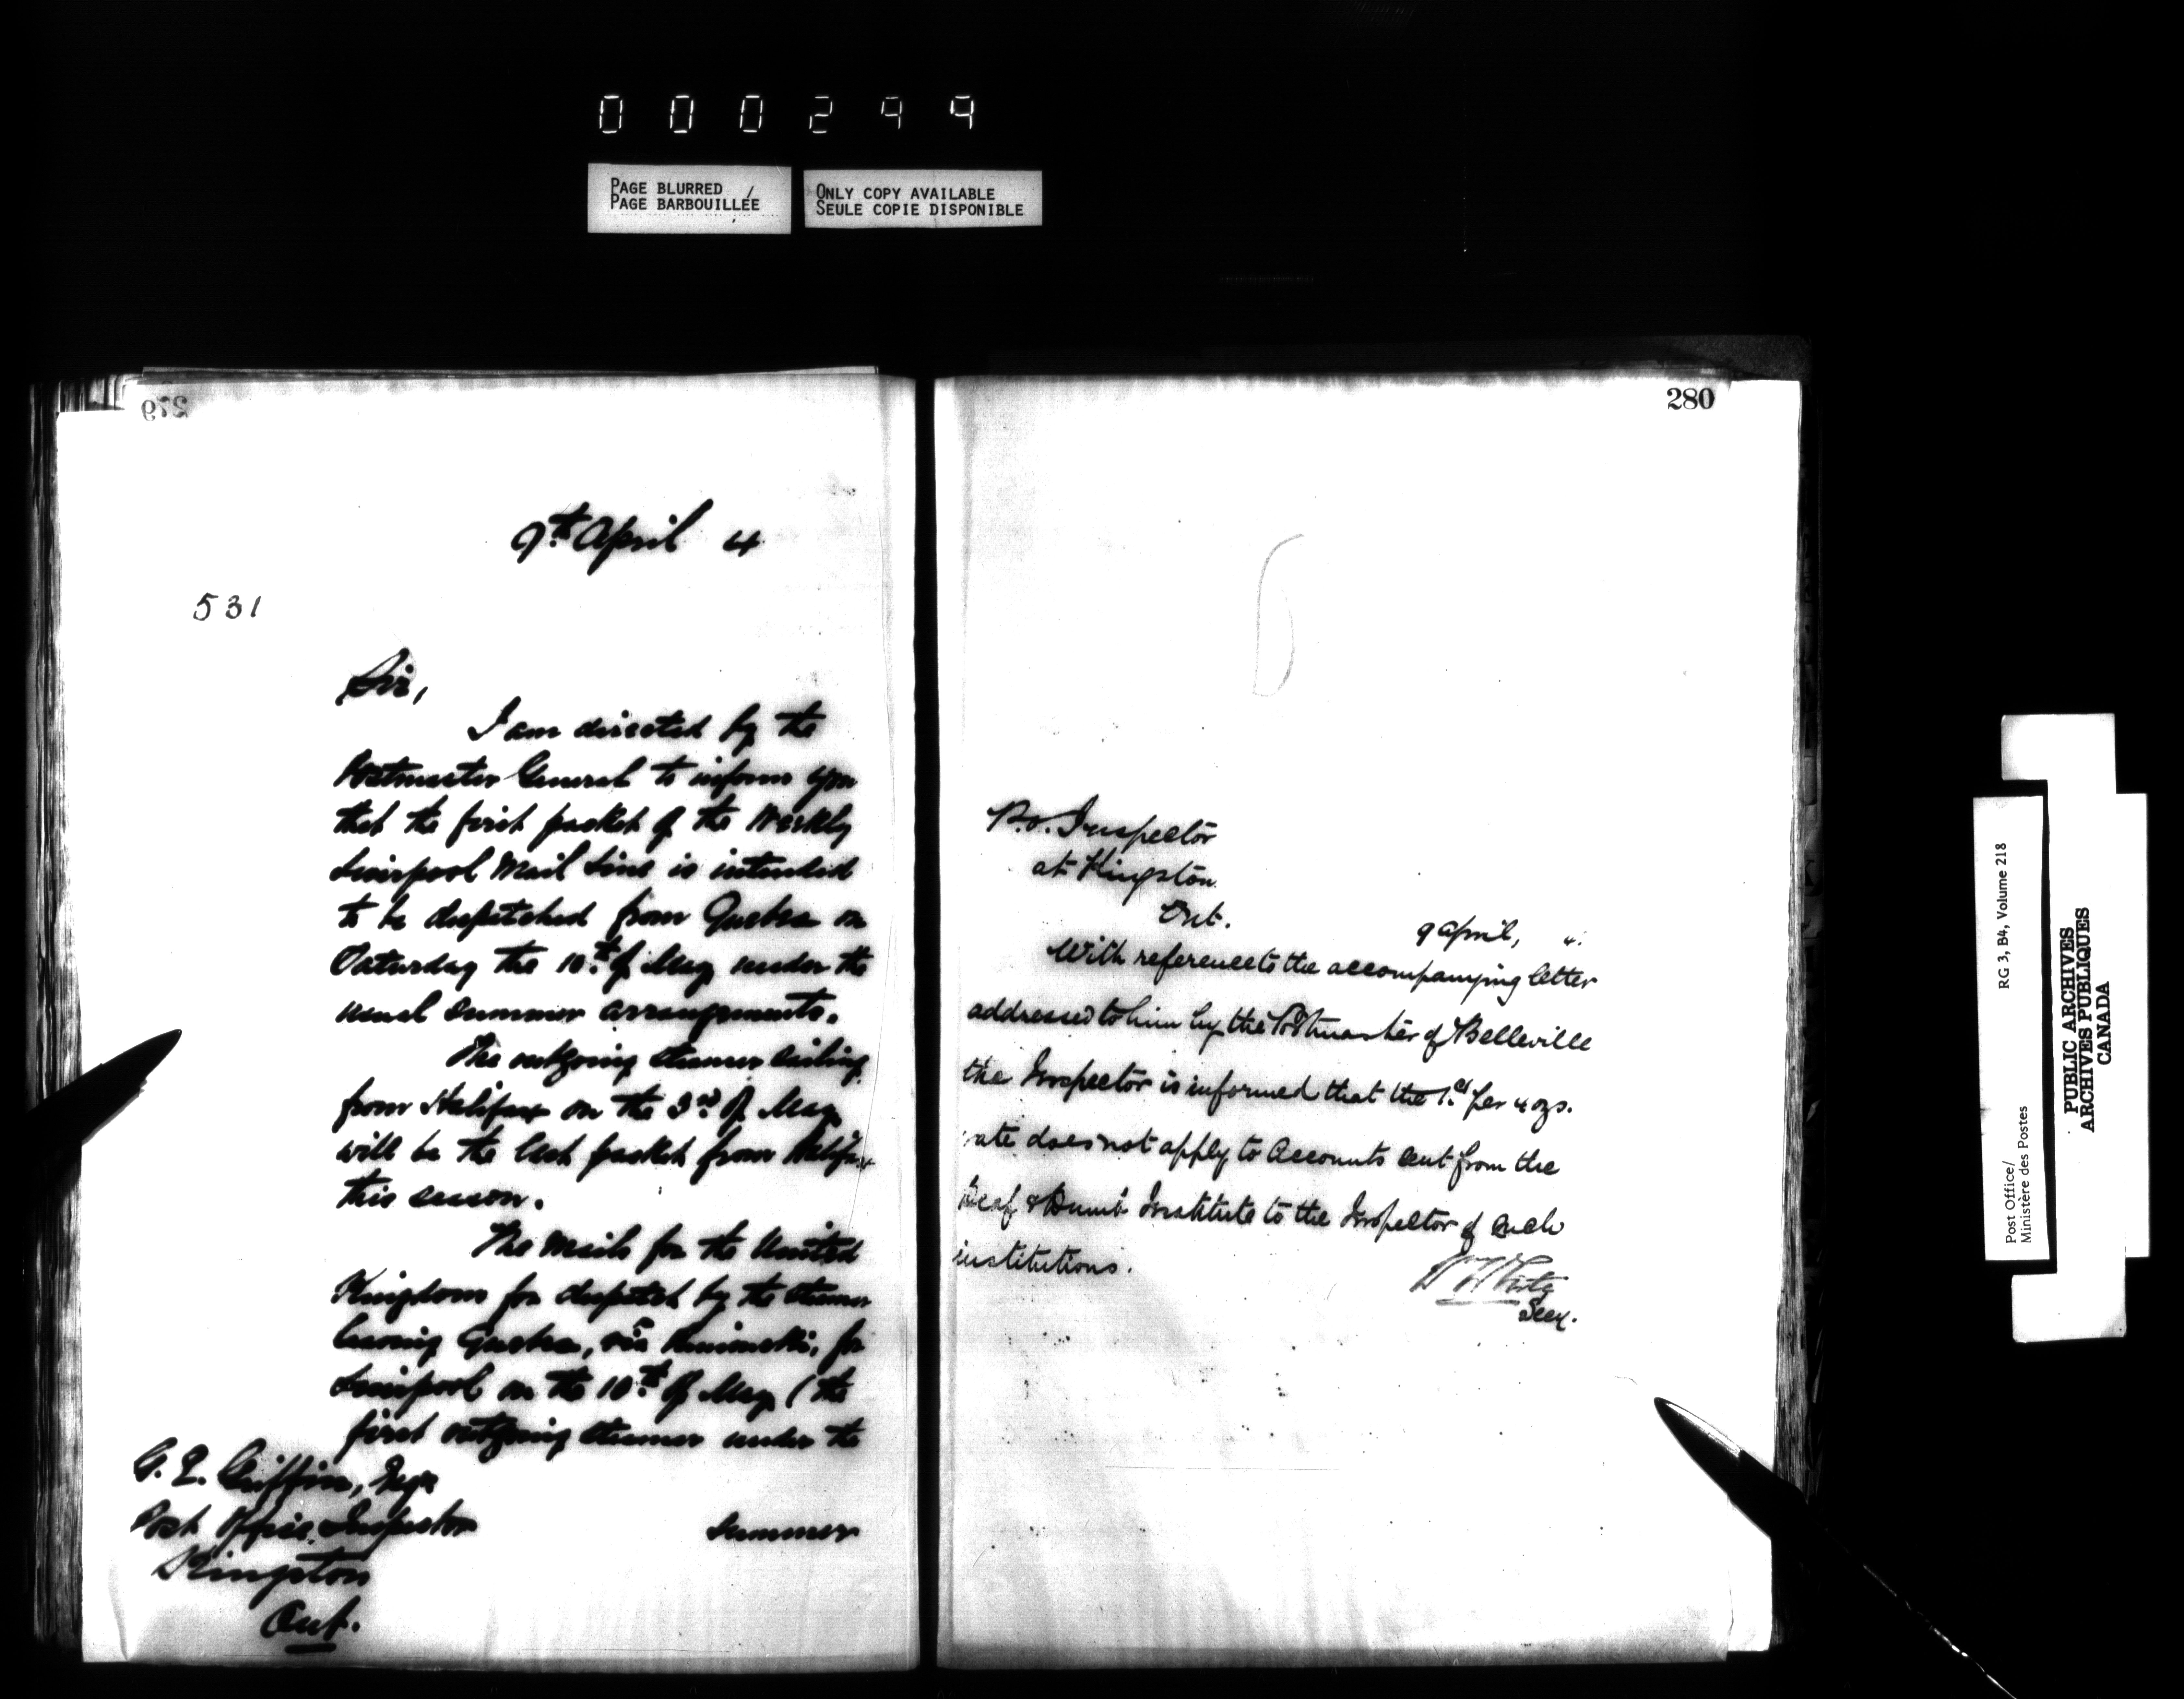 000299
PAGE BLURRED /
PAGE BARBOUILLÉE
ONLY COPY AVAILABLE
SEULE COPIE DISPONIBLE
279
9th April 4
531
Sir,
I am directed by the
Postmaster General to inform you
that the first packet of the Weekly
Liverpool Mail Line is intended
to be despatched from Quebec on
Saturday the 10th of May under the
usual Summer arrangements.
The outgoing steamer sailing
from Halifax on the 3rd of May
will be the last packet from Halifax
this season.
The mails for the United
Kingdom for despatch by the steamer
leaving Quebec, via Rimouski, for
Liverpool on the 10th of May (the
first outgoing steamer under the
G. E. Griffin, Esqr
Post Office Inspector
Kingston
Ont.
Summer
280
P.O. Inspector
at Kingston
Ont.
9 April, 4.
With reference to the accompanying letter
addressed to him by the Postmaster of Belleville
the Inspector is informed that the 1.ct per 4 ozs.
rate does not apply to Accounts sent from the
Deaf & Dumb Institute to the Inspector of such
institutions.
Secy.
Post Office/
Ministère des Postes
RG 3, B4, Volume 218
PUBLIC ARCHIVES
ARCHIVES PUBLIQUES
CANADA